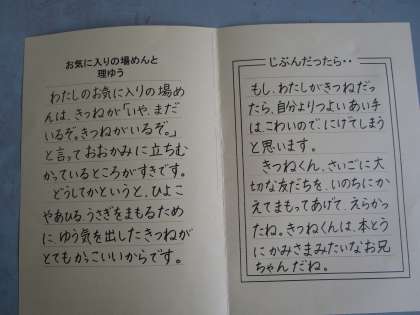 お気に入りの場めんと
理ゆう
わたしのお気に入りの場め
んは、きつねが「いや、まだ
いるぞ。きつねがいるぞ。」
と言っておおかみに立ちむ
かっているところがすきです。
どうしてかというと、ひよこ
やあひる、うさぎをまもるため
に、ゆう気を出したきつねが
とてもかっこいいからです。
じぶんだったら・・
もし、わたしがきつねだっ
たら、自分よりつよいあい手
は、こわいので、にげてしまう
と思います。
きつねくん、さいごに大
切な友だちを、いのちにか
えてまもってあげて、えらかっ
たね。きつねくんは、本とう
にかみさまみたいなお兄
ちゃんだね。